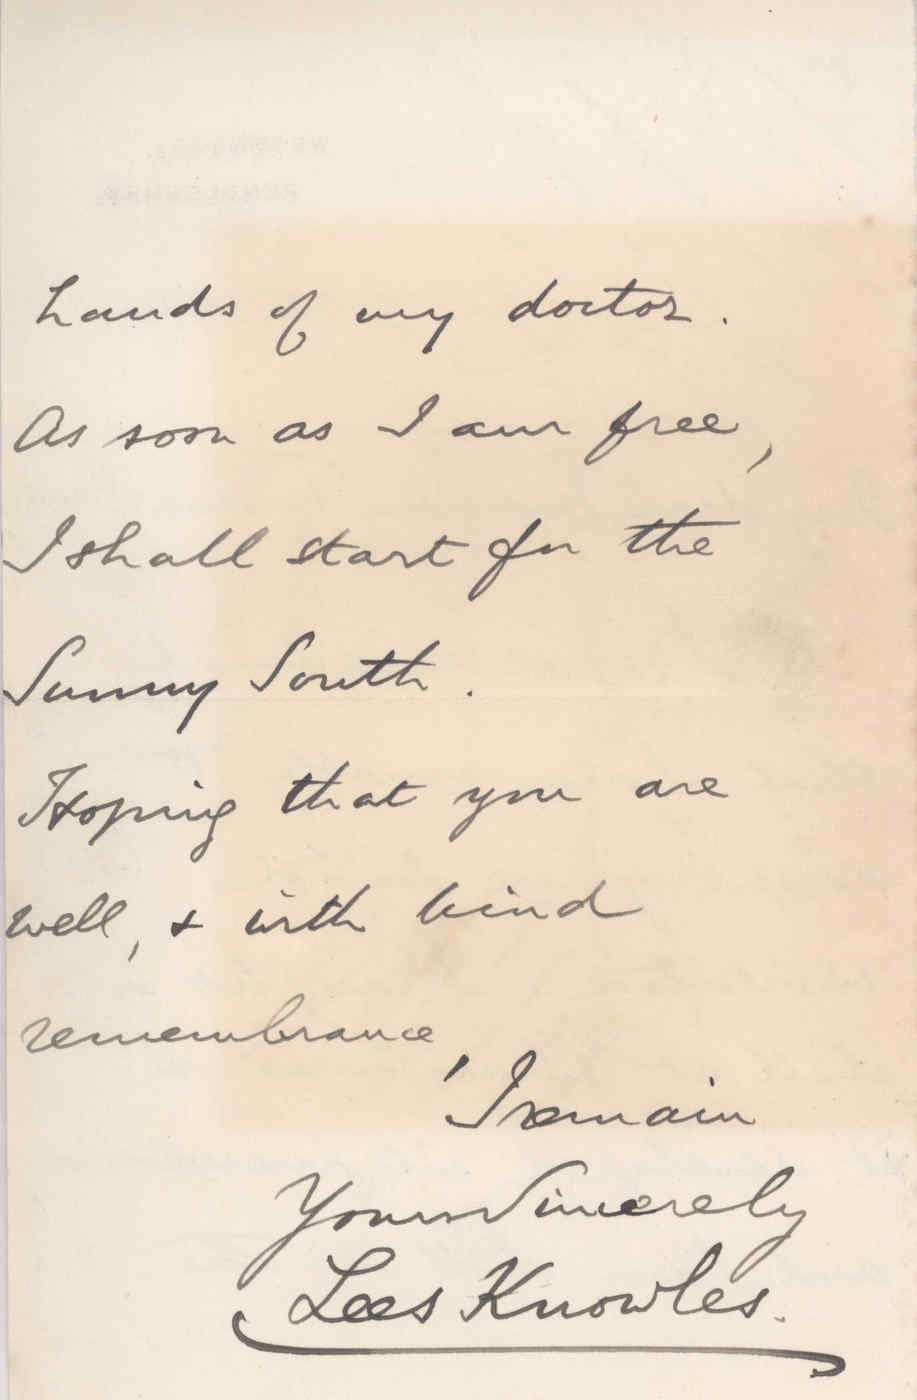 hands of my doctor.
As soon as I am free,
I shall start for the
Sunny South.
Hoping that you are
well, & with kind
remembrance,
I remain
Yours Sincerely
Lees Knowles.